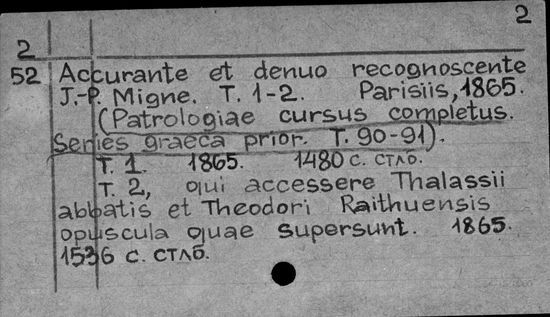 2
2
52 Accurante et denuo recognoscente
J.-P. Migne. T. 1-2. Parisiis, 1865.
(Patrologiae cursus completus.
Series graeca prior. T. 90-91).
T. 1. 1865. 1480 с. стлб.
T. 2, qui accessere Thalassii
abbatis et Theodori Raithuensis
opuscula quae supersunt. 1865.
1536 с. стлб.